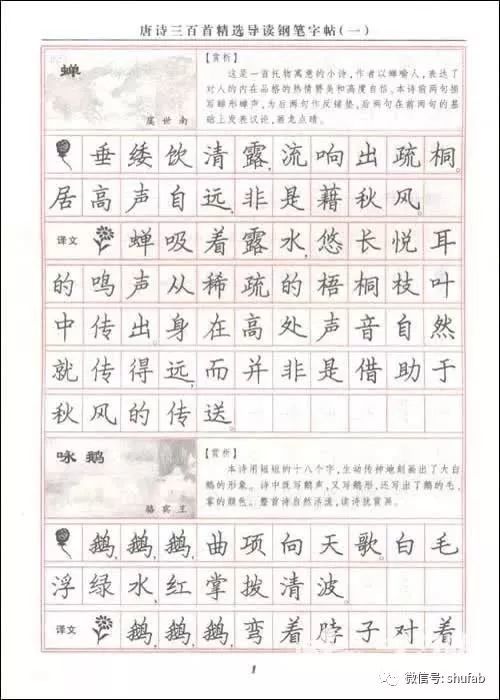 唐诗三百首精选导读钢笔字帖(一)
蝉
虞世南
【赏析】
这是一首托物寓意的小诗,作者以蝉喻人,表达了
对人的内在品格的热情赞美和高度自信。本诗前两句描
写蝉形蝉声,为后两句作反铺垫,后两句在前两句的基
础上发表议论,画龙点睛。
垂緌饮清露,流响出疏桐。
居高声自远,非是藉秋风。
译文 蝉吸着露水,悠长悦耳
的鸣声从稀疏的梧桐枝叶
中传出。身在高处声音自然
就传得远,而并非是借助于
秋风的传送。
咏鹅
骆宾王
【赏析】
本诗用短短的十八个字,生动传神地刻画出了大白
鹅的形象。诗中既写鹅声,又写鹅形,还写出了鹅的毛、
掌的颜色。整首诗自然洋溢,读诗犹赏画。
鹅,鹅,鹅,曲项向天歌。白毛
浮绿水,红掌拨清波。
译文 鹅,鹅,鹅,弯着脖子对着
1
微信号: shufab